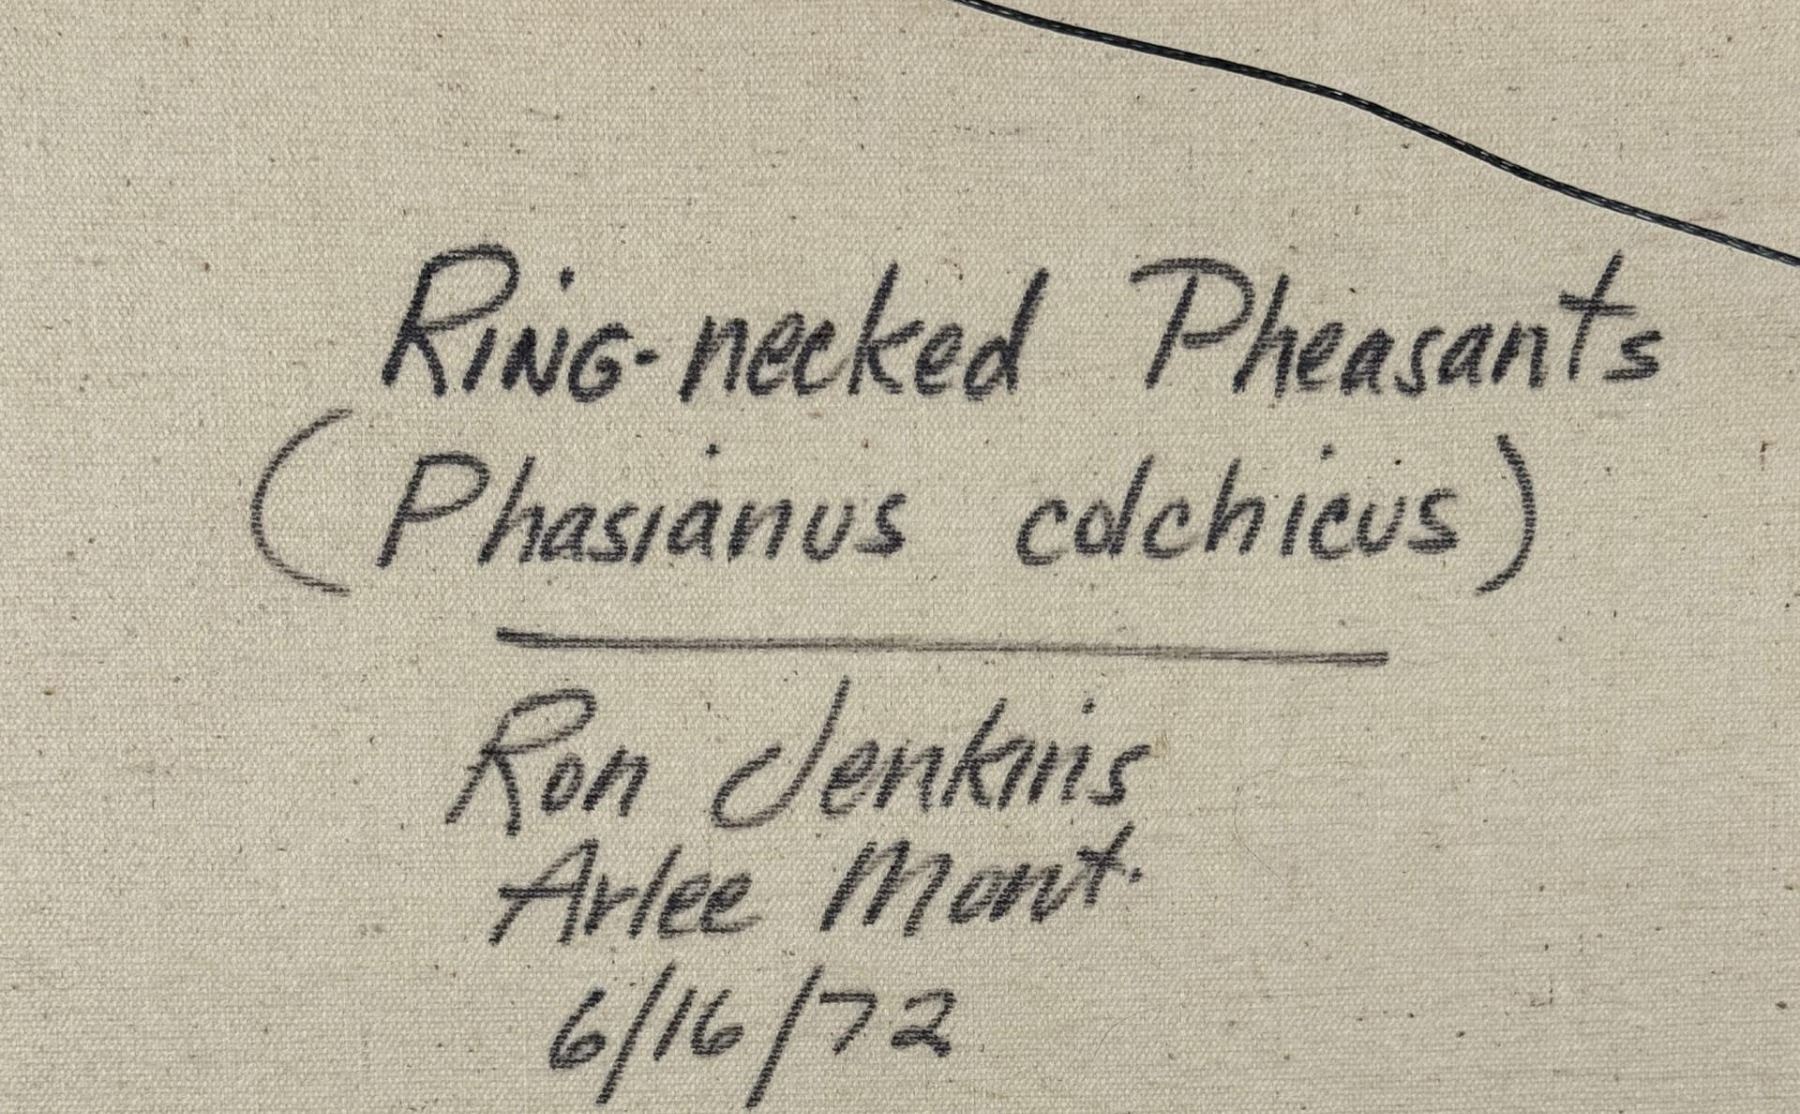 Ring-necked Pheasants
(Phasianus colchicus)
Ron Jenkins
Arlee Mont.
6/16/72